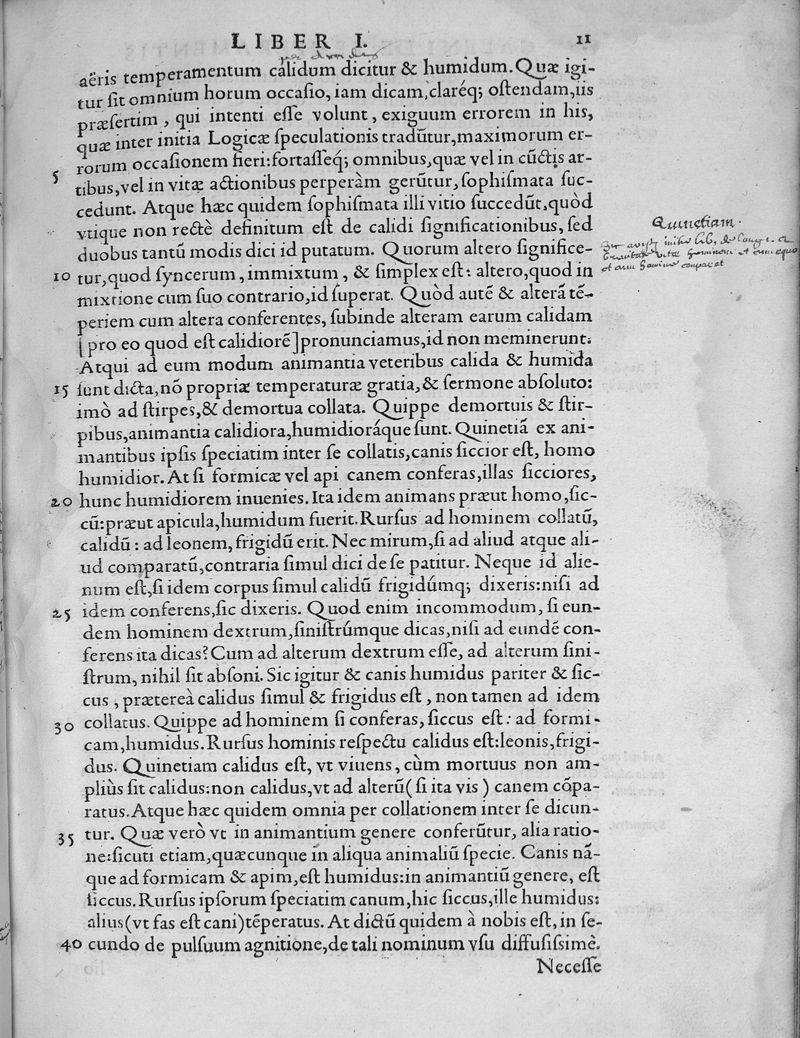 LIBER I. 11
aëris temperamentum calidum dicitur & humidum. Quæ igi-
tur ſit omnium horum occaſio, iam dicam, claréq; oſtendam, iis
præſertim, qui intenti eſſe volunt, exiguum errorem in his,
quæ inter initia Logicæ ſpeculationis tradũtur, maximorum er-
rorum occaſionem fieri: fortaſſeq́; omnibus, quæ vel in cũctis ar-
5 tibus, vel in vitæ actionibus perperàm gerũtur, ſophiſmata ſuc-
cedunt. Atque hæc quidem ſophiſmata illi vitio ſuccedũt, quòd
vtique non rectè definitum eſt de calidi ſignificationibus, ſed
duobus tantũ modis dici id putatum. Quorum altero ſignifice-
10 tur, quod ſyncerum, immixtum, & ſimplex eſt: altero, quod in
mixtione cum ſuo contrario, id ſuperat. Quòd autẽ & alterã tẽ-
periem cum altera conferentes, ſubinde alteram earum calidam
[pro eo quod eſt calidiorẽ] pronunciamus, id non meminerunt.
Atqui ad eum modum animantia veteribus calida & humida
15 ſunt dicta, nõ propriæ temperaturæ gratia, & ſermone abſoluto:
imò ad ſtirpes, & demortua collata. Quippe demortuis & ſtir-
pibus, animantia calidiora, humidioráque ſunt. Quinetiã ex ani-
mantibus ipſis ſpeciatim inter ſe collatis, canis ſiccior eſt, homo
humidior. At ſi formicæ vel api canem conferas, illas ſicciores,
20 hunc humidiorem inuenies. Ita idem animans præut homo, ſic-
cũ: præut apicula, humidum fuerit. Rurſus ad hominem collatũ,
calidũ: ad leonem, frigidũ erit. Nec mirum, ſi ad aliud atque ali-
ud comparatũ, contraria ſimul dici de ſe patitur. Neque id alie-
num eſt, ſi idem corpus ſimul calidũ frigidúmq; dixeris: niſi ad
25 idem conferens, ſic dixeris. Quod enim incommodum, ſi eun-
dem hominem dextrum, ſiniſtrúmque dicas, niſi ad eundẽ con-
ferens ita dicas? Cum ad alterum dextrum eſſe, ad alterum ſini-
ſtrum, nihil ſit abſoni. Sic igitur & canis humidus pariter & ſic-
cus, præterea calidus ſimul & frigidus eſt, non tamen ad idem
30 collatus. Quippe ad hominem ſi conferas, ſiccus eſt: ad formi-
cam, humidus. Rurſus hominis reſpectu calidus eſt: leonis, frigi-
dus. Quinetiam calidus eſt, vt viuens, cùm mortuus non am-
pliùs ſit calidus: non calidus, vt ad alterũ (ſi ita vis) canem cõpa-
ratus. Atque hæc quidem omnia per collationem inter ſe dicun-
35 tur. Quæ verò vt in animantium genere conferũtur, alia ratio-
ne: ſicuti etiam, quæcunque in aliqua animaliũ ſpecie. Canis nã-
que ad formicam & apim, eſt humidus: in animantiũ genere, eſt
ſiccus. Rurſus ipſorum ſpeciatim canum, hic ſiccus, ille humidus:
alius (vt fas eſt cani) tẽperatus. At dictũ quidem à nobis eſt, in ſe-
40 cundo de pulſuum agnitione, de tali nominum vſu diffuſiſsimè.
Neceſſe
Quinetiam.